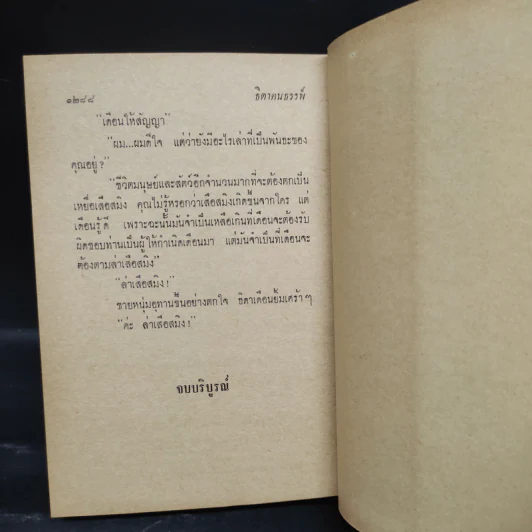 ๑๒๘๘ ธิดาคนธรรพ์
"เดือนให้สัญญา"
"ผม...ผมดีใจ แต่ว่ายังมีอะไรเล่าที่เป็นพันธะของ
คุณอยู่?"
"ชีวิตมนุษย์และสัตว์อีกจำนวนมากที่จะต้องตกเป็น
เหยื่อเสือสมิง คุณไม่รู้หรอกว่าเสือสมิงเกิดขึ้นจากใคร แต่
เดือนรู้ดี เพราะฉะนั้นมันจำเป็นเหลือเกินที่เดือนจะต้องรับ
ผิดชอบท่านเป็นผู้ให้กำเนิดเดือนมา แต่มันจำเป็นที่เดือนจะ
ต้องตามล่าเสือสมิง"
"ล่าเสือสมิง!"
ชายหนุ่มอุทานขึ้นอย่างตกใจ ธิดาเดือนยิ้มเศร้า ๆ
"ค่ะ ล่าเสือสมิง!"
จบบริบูรณ์